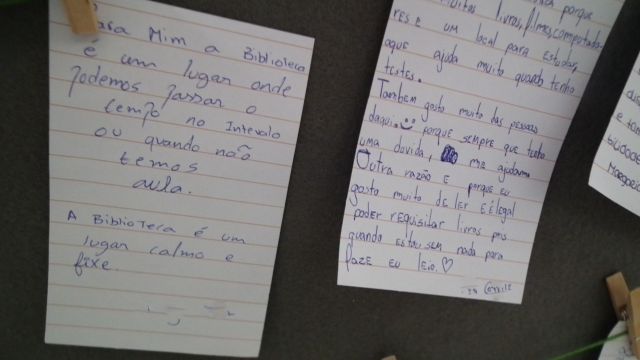 Para Mim a Biblioteca
é um lugar onde
Podemos Passar o
tempo no Intervalo
ou quando não
temos
aula.
A Biblioteca é um
lugar calmo e
fixe.
porque
livros, filmes, computado-
res e um local para estudar,
que ajuda muito quando tenho
testes.
Também gosto muito das pessoas
daqui porque sempre que tenho
uma dúvida, me ajudam
Outra razão e porque eu
gosto muito de ler E é legal
poder requisitar livros
quando estou sem nada para
faze eu leio. ♡